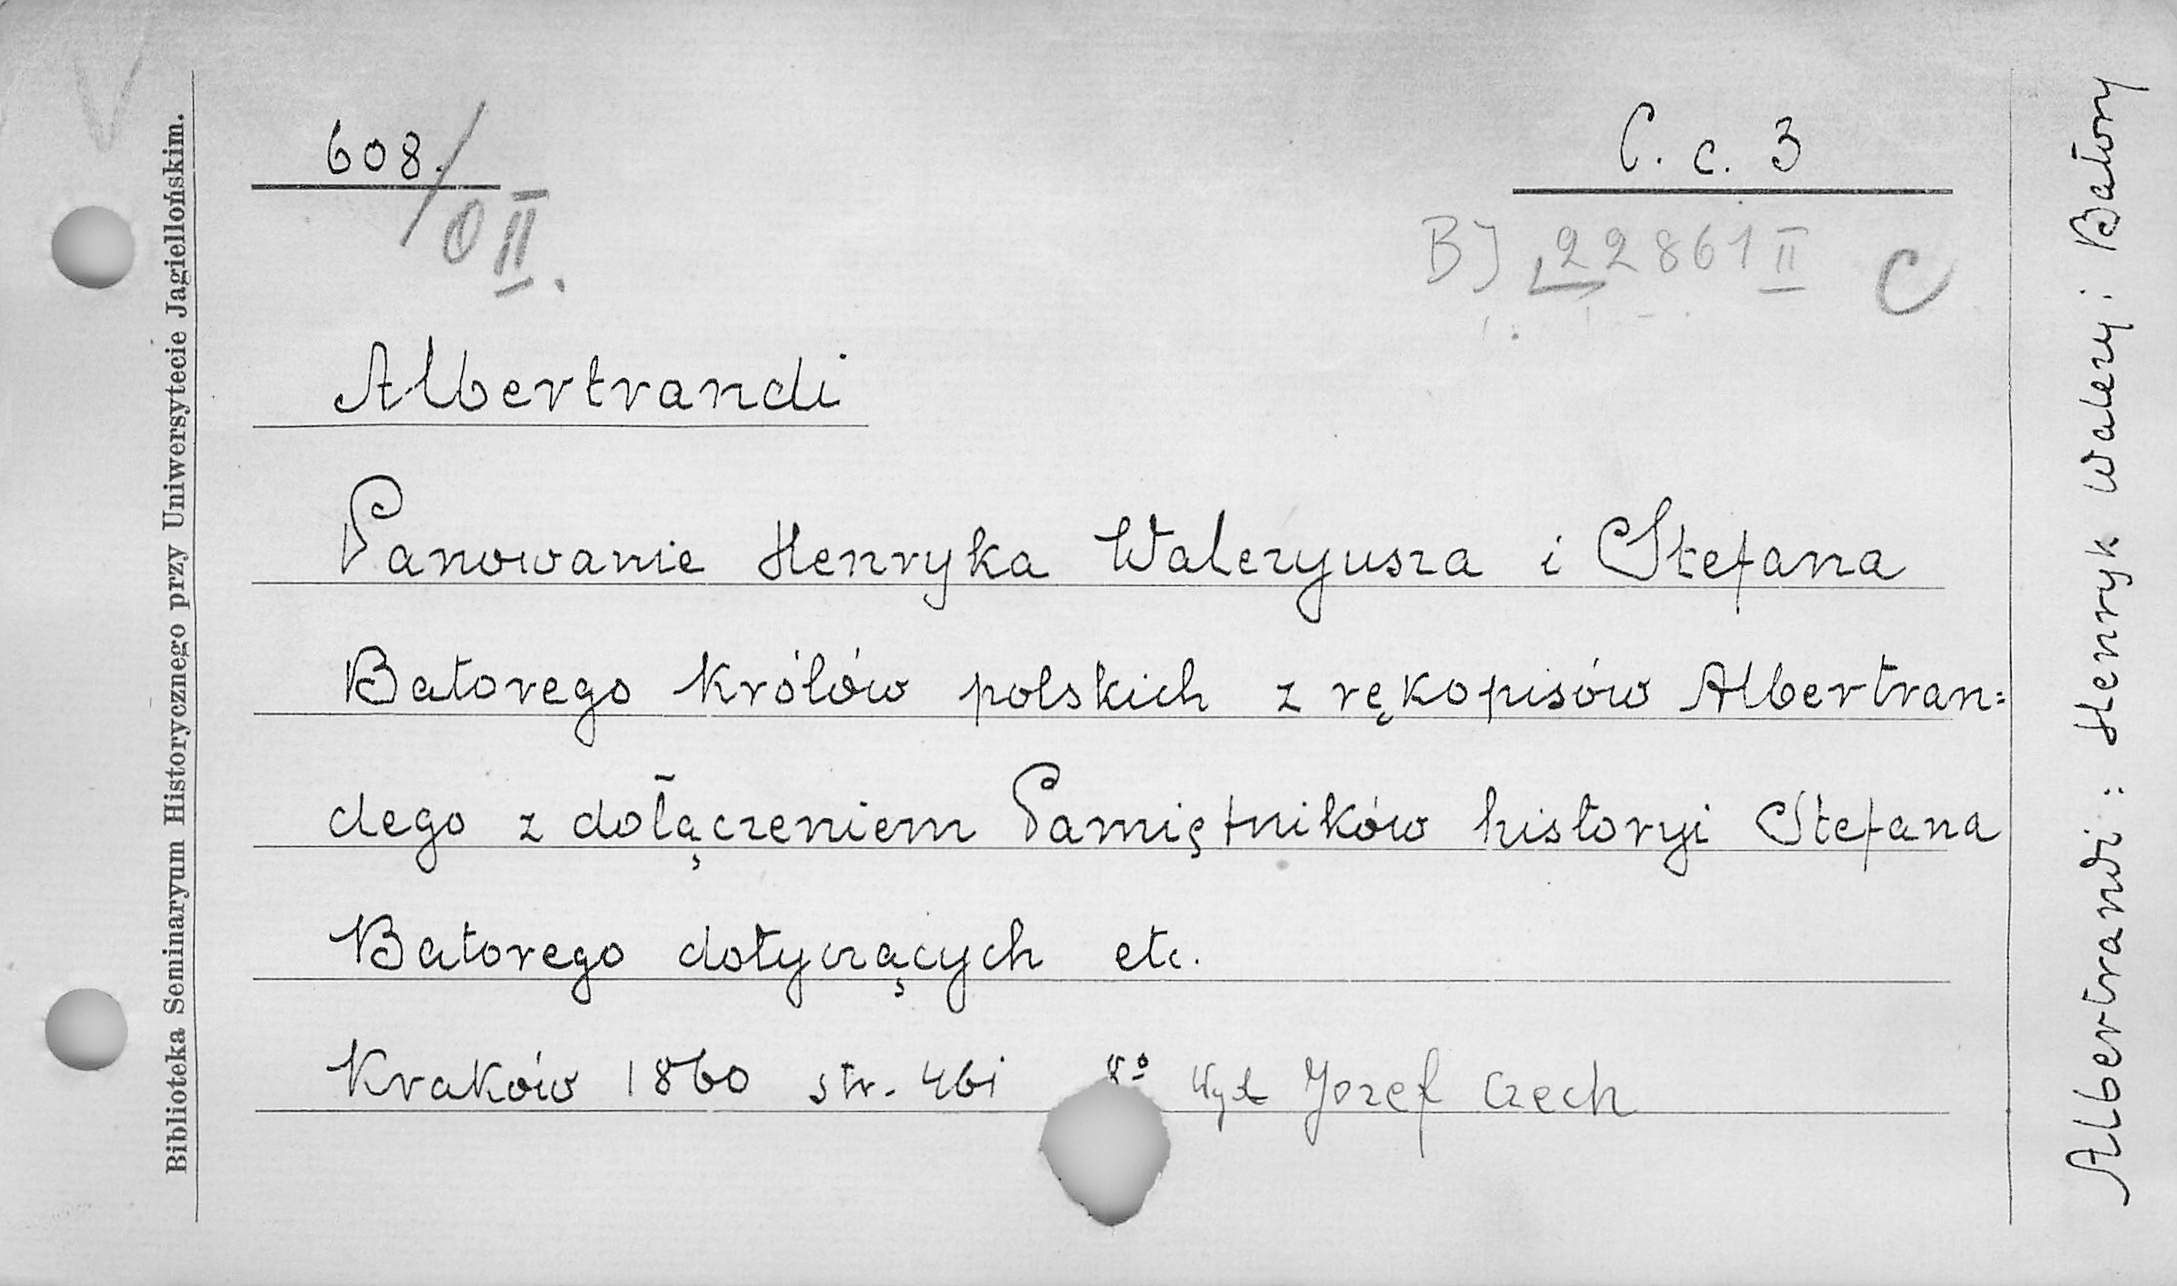 Biblioteka Seminaryum Historycznego przy Uniwersytecie Jagiellońskim.
608./ 0 II.
C. c. 3
BJ 22861 II C
Albertrandi
Panowanie Henryka Waleryusza i Stefana
Batorego Królów polskich z rękopisów Albertran=
dego z dołączeniem Pamiętników historyi Stefana
Batorego dotyczących etc.
Kraków 1860 str. 461 8º Wyd Jozef Czech
Albertrandi: Henryk Walezy i Batory